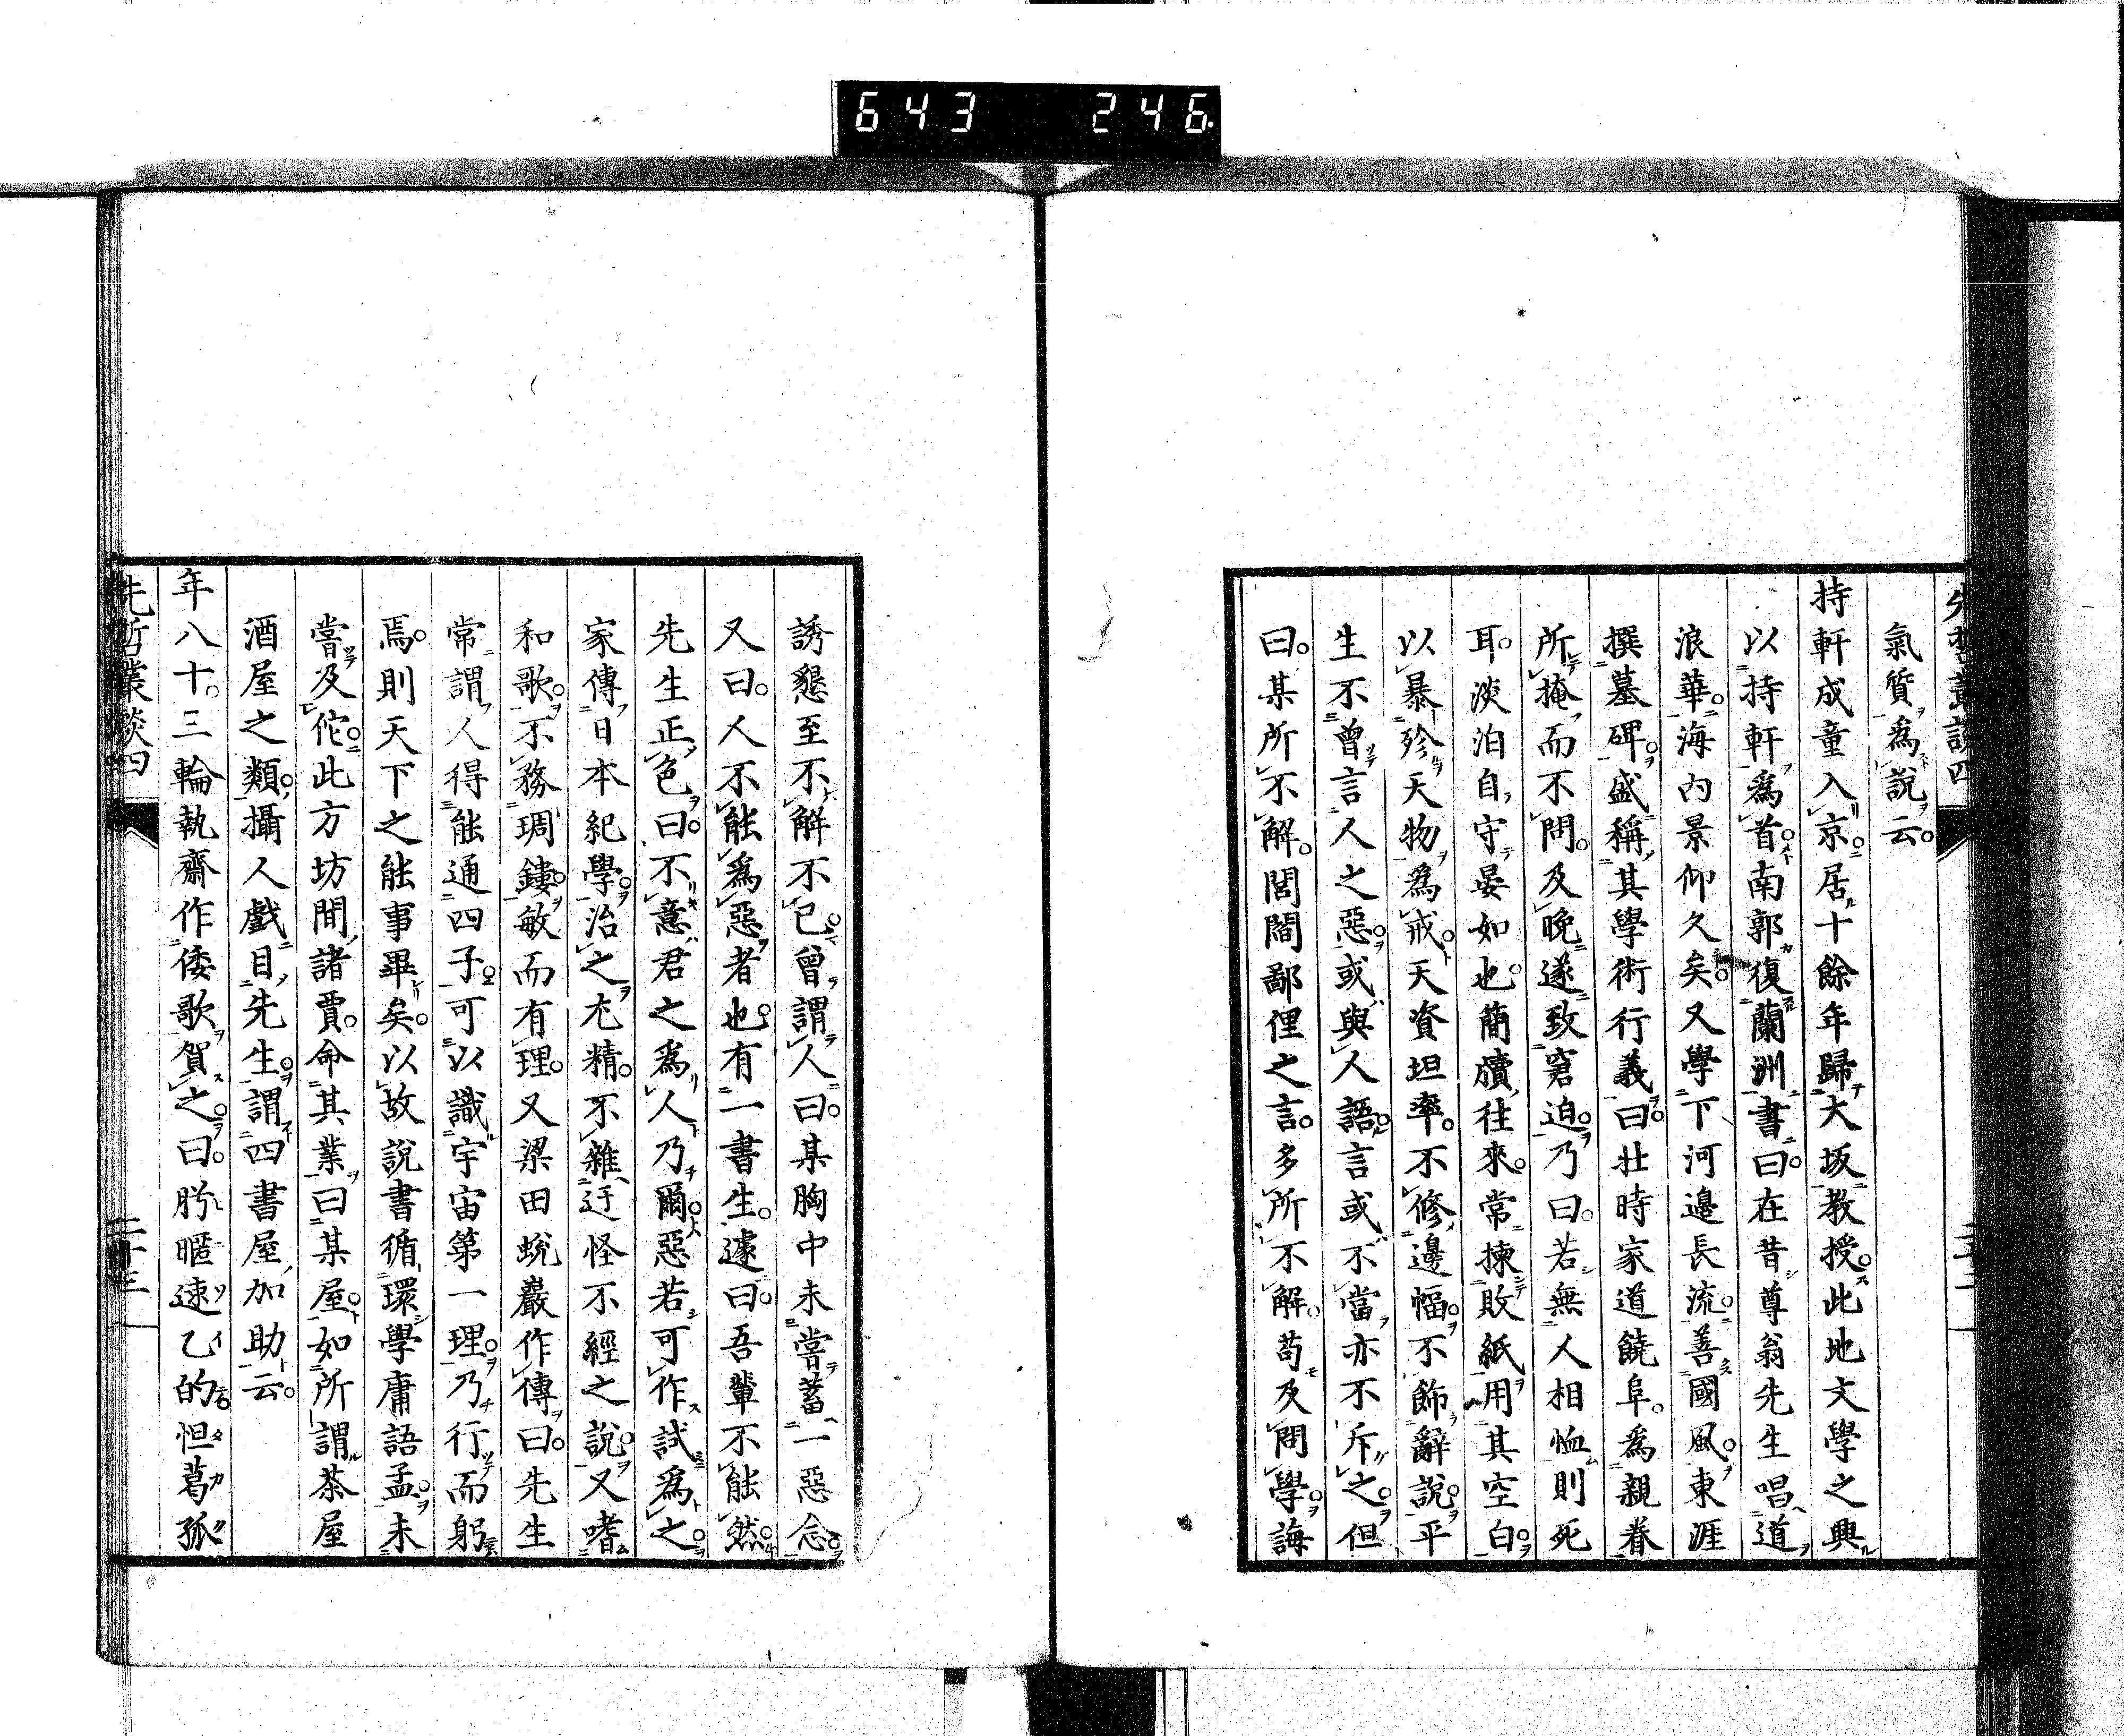 643 246
先哲叢談四
氣質爲說云。
持軒成童入京。居十餘年歸大坂教授。此地文學之興
以持軒爲首。南郭復蘭洲書曰。在昔尊翁先生唱道
浪華。海內景仰久矣。又學下河邊長流。善國風。東涯
撰墓碑。盛稱其學術行義。曰壯時家道饒阜。爲親眷
所掩而不問。及晚遂致窘迫。乃曰。若無人相恤則死
耳。淡泊自守晏如也。簡牘往來。常揀敗紙用其空白。
以暴殄天物爲戒。天資坦率。不修邊幅。不飾辭說。平
生不曾言人之惡。或與人語。言或不當亦不斥之。但
曰。某所不解。閭閻鄙俚之言。多所不解。苟及問學。誨
二十二
誘懇至不解不已。曾謂人曰。某胸中未嘗蓄一惡念。
又曰。人不能爲惡者也。有一書生。遽曰。吾輩不能然。
先生正色曰。不意君之爲人乃爾。惡若可作試爲之。
家傳日本紀學。治之尤精。不雜迂怪不經之說。又嗜
和歌。不務琱鏤。敏而有理。又梁田蛻巖作傳曰。先生
常謂人得能通四子。可以識宇宙第一理。乃行而躬
焉。則天下之能事畢矣。以故說書循環學庸語孟。未
嘗及佗。此方坊間諸賈。命其業曰某屋。如所謂茶屋
酒屋之類。攝人戲目先生。謂四書屋加助云。
年八十。三輪執齋作倭歌賀之。曰。肹暱速乙的怛葛孤
先哲叢談四
二十三